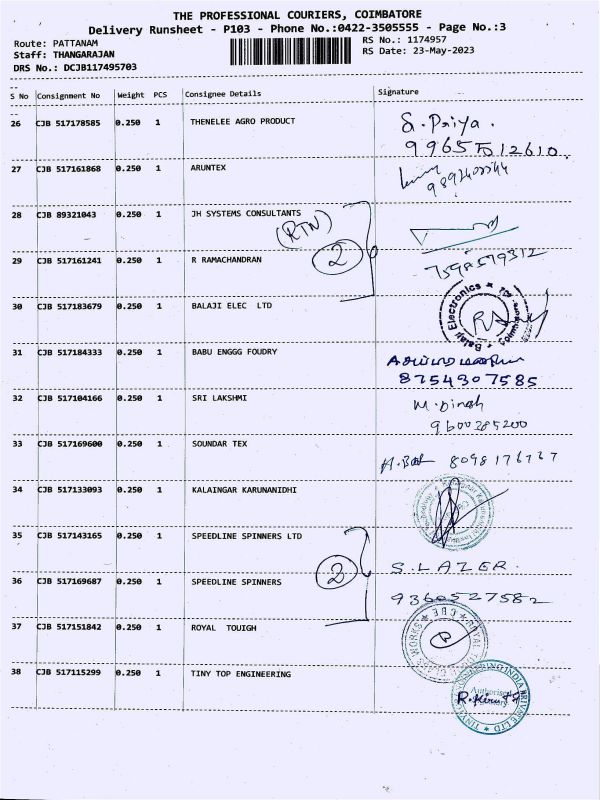 THE PROFESSIONAL COURIERS, COIMBATORE
Delivery Runsheet - P103 - Phone No.:0422-3505555 - Page No.:3
Route: PATTANAM RS No.: 1174957
Staff: THANGARAJAN RS Date: 23-May-2023
DRS No.: DCJB117495703
S No Consignment No Weight PCS Consignee Details Signature
26 CJB 517178585 0.250 1 THENELEE AGRO PRODUCT S. Priya.
9965512610.
27 CJB 517161868 0.250 1 ARUNTEX
28 CJB 89321043 0.250 1 JH SYSTEMS CONSULTANTS
(RTN)
29 CJB 517161241 0.250 1 R RAMACHANDRAN 2 7598579312
30 CJB 517183679 0.250 1 BALAJI ELEC LTD
Balaji Electronics
31 CJB 517184333 0.250 1 BABU ENGGG FOUDRY
8754307585
32 CJB 517104166 0.250 1 SRI LAKSHMI M. Dinesh
9600285200
33 CJB 517169600 0.250 1 SOUNDAR TEX 8098176727
34 CJB 517133093 0.250 1 KALAINGAR KARUNANIDHI
35 CJB 517143165 0.250 1 SPEEDLINE SPINNERS LTD
2 S. LAZER.
36 CJB 517169687 0.250 1 SPEEDLINE SPINNERS 9360527582
37 CJB 517151842 0.250 1 ROYAL TOUIGH
CBE
38 CJB 517115299 0.250 1 TINY TOP ENGINEERING
Authorised